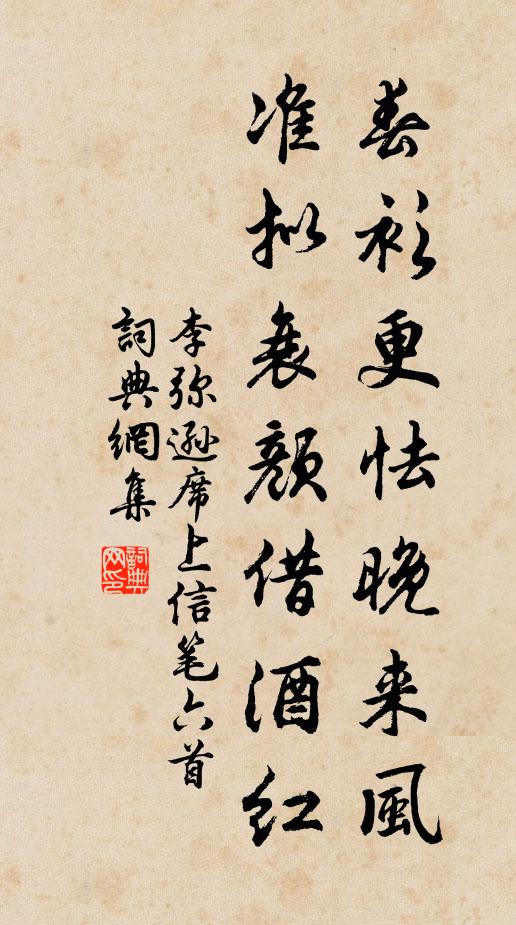 春衫更怯晚来風
准拟衰顔借酒红
李弥遜席上信笔六首
詞典網集
詞典網印